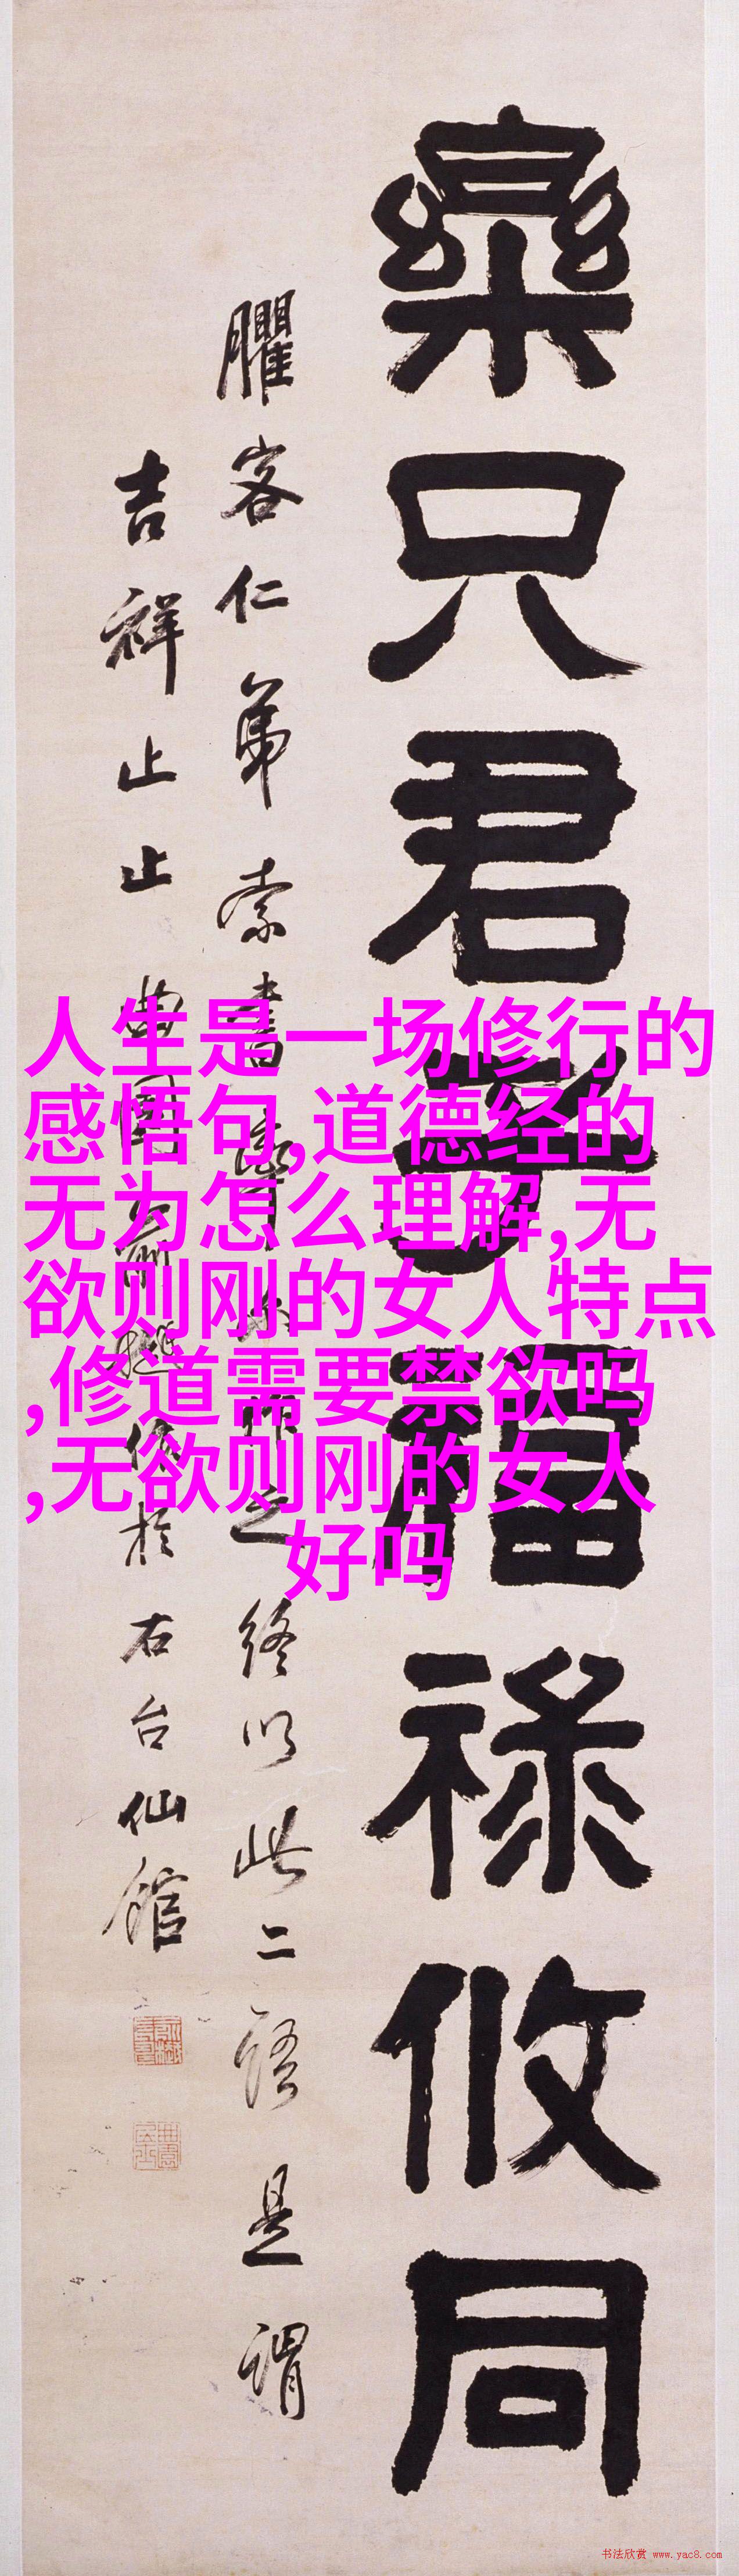 樂只君子福祿攸同
臞客仁弟索書之終以此二語是謂
吉祥止止曲園俞樾於右台仙館
人生是一场修行的
感悟句,道德经的
无为怎么理解,无
欲则刚的女人特点
,修道需要禁欲吗
,无欲则刚的女人
好吗
书法欣赏 www.yac8.com